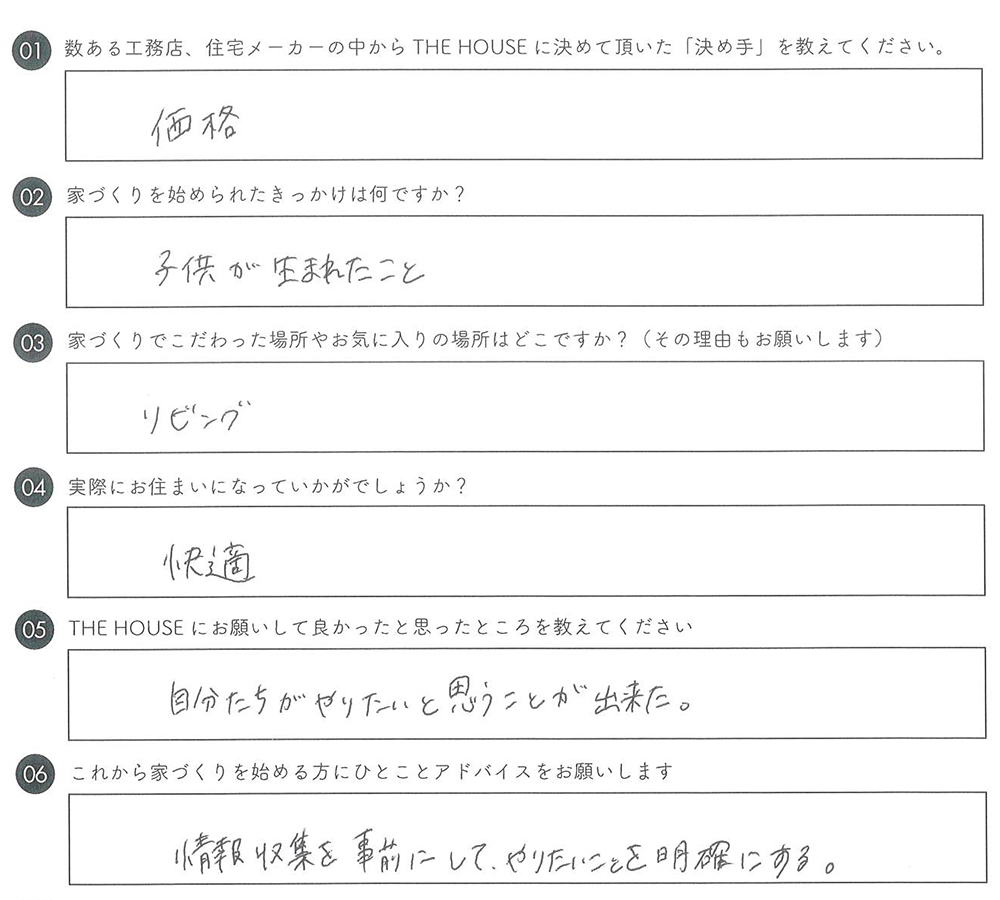 01 数ある工務店、住宅メーカーの中から THE HOUSE に決めて頂いた「決め手」を教えてください。
価格
02 家づくりを始められたきっかけは何ですか？
子供が生まれたこと
03 家づくりでこだわった場所やお気に入りの場所はどこですか？（その理由もお願いします）
リビング
04 実際にお住まいになっていかがでしょうか？
快適
05 THE HOUSE にお願いして良かったと思ったところを教えてください
自分たちがやりたいと思うことが出来た。
06 これから家づくりを始める方にひとことアドバイスをお願いします
情報収集を事前にして、やりたいことを明確にする。